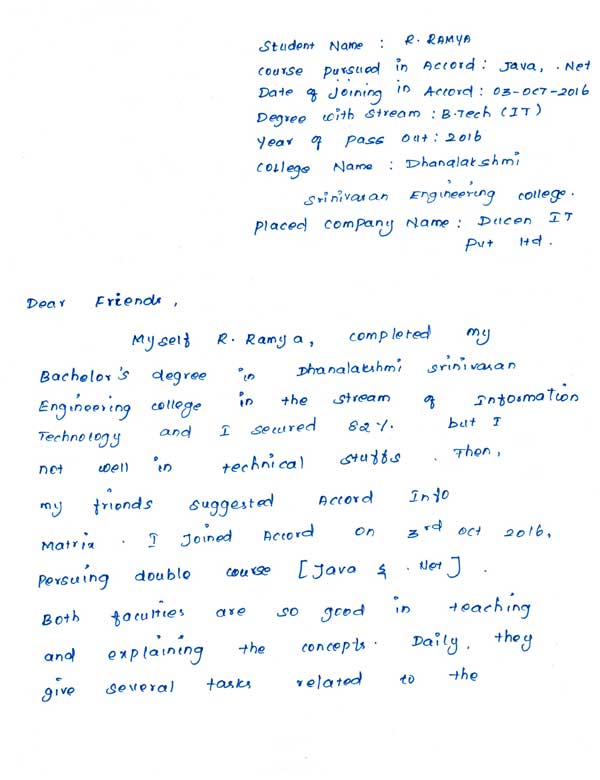 Student Name : R. RAMYA
course pursued in Accord : Java, .Net
Date of joining in Accord : 03-OCT-2016
Degree with stream : B.Tech (IT)
Year of pass out : 2016
College Name : Dhanalakshmi
Srinivasan Engineering college.
placed company Name : Ducen IT
Pvt ltd.
Dear Friends,
Myself R. Ramya, completed my
Bachelor's degree in Dhanalakshmi srinivasan
Engineering college in the stream of Information
Technology and I secured 82%. but I
not well in technical stuffs. Then,
my friends suggested Accord Info
Matrix. I Joined Accord on 3rd oct 2016,
Persuing double course [Java & .Net].
Both faculties are so good in teaching
and explaining the concepts. Daily, they
give several tasks related to the